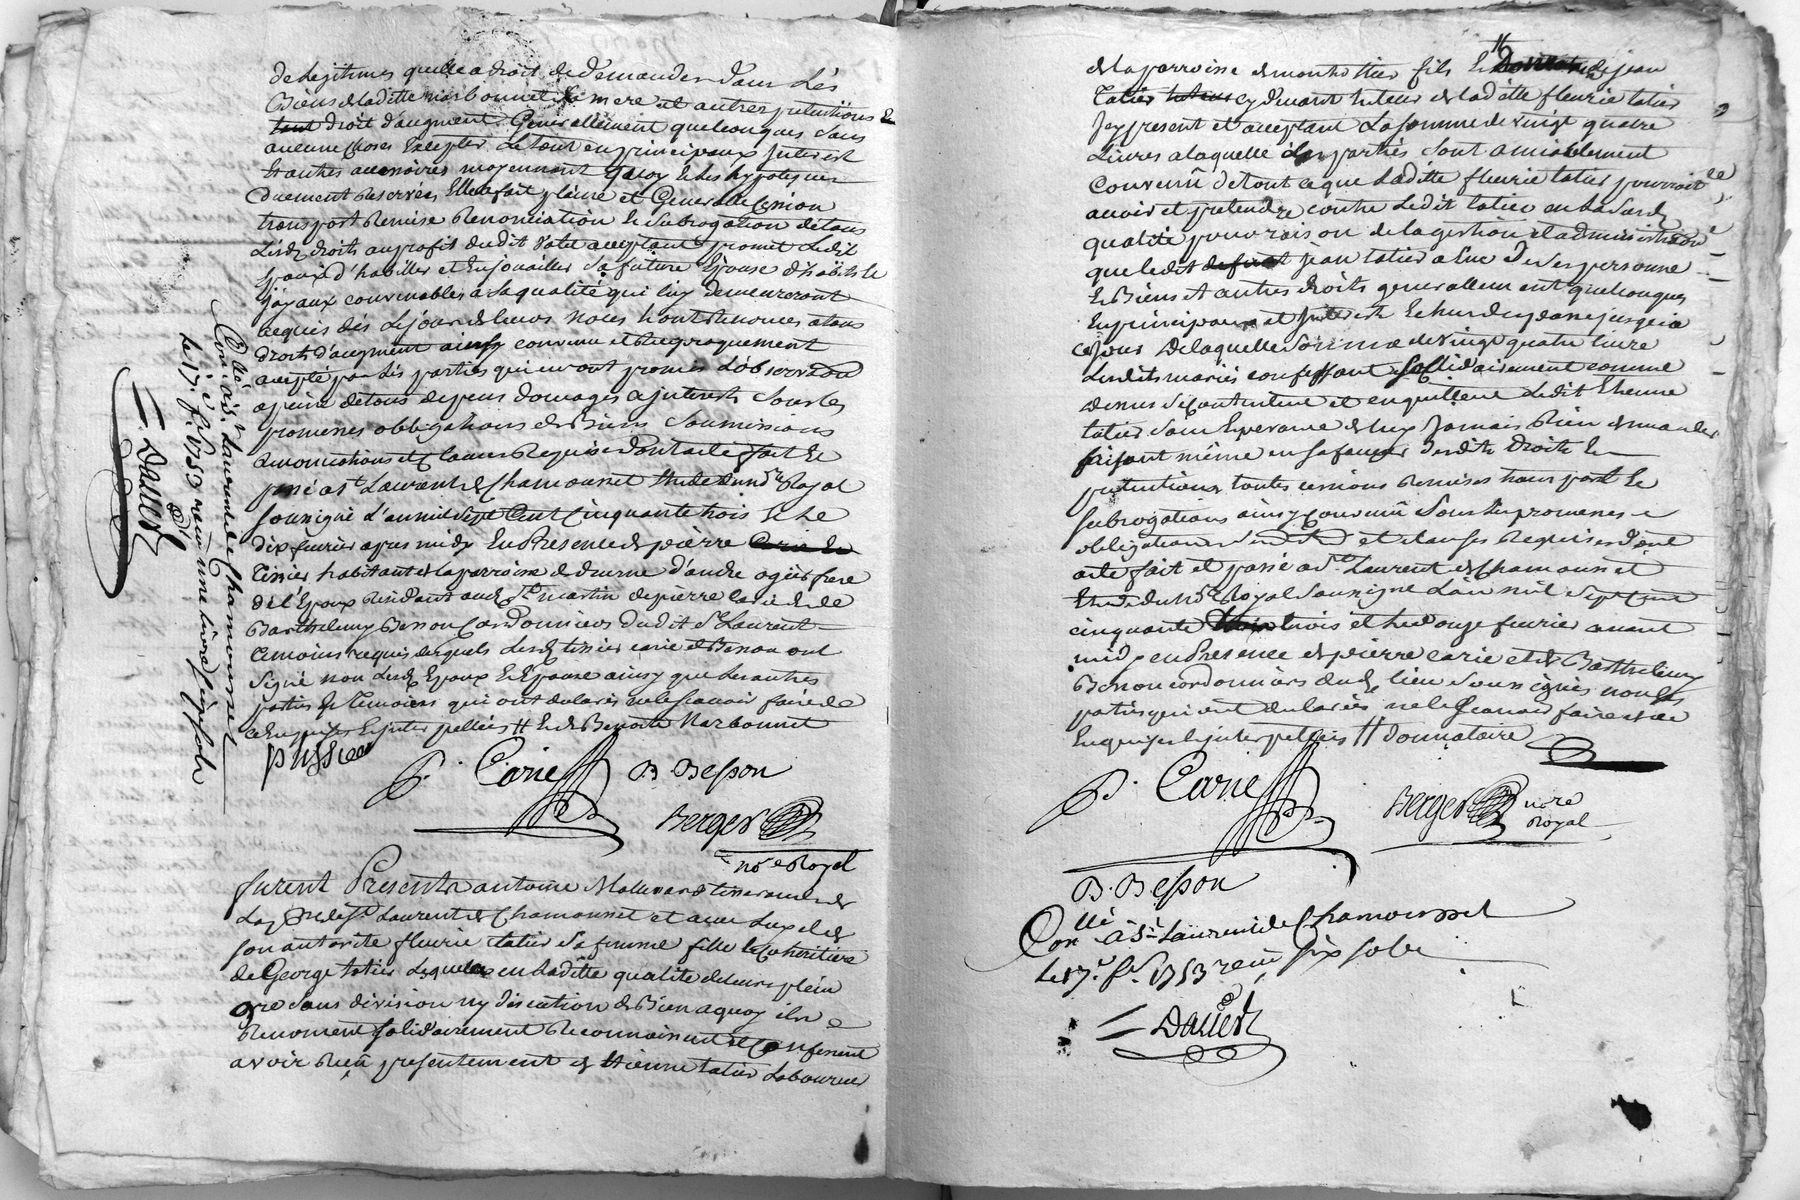 de legitimes quelle a droit de demander dans Les
Biens de laditte narbonnet sa mere et autres pretentions &
tout droit d'augment Generallement quelconques sans
aucune choses Excepter Le tout en principaux Interest
Et autres accessoires moyennant quoy Et les hypoteques
Duement Reservées Elle a fait plaine et Generalle Cession
transport Remise Renonciation & Subrogation de tous
Lesd. droits au profit dudit acceptant promet Ledit
Epoux d'habiller et Enjouailler Sa future Epouse d'habits &
joyaux convenables a Sa qualité qui luy demeureront
acquis dés Lejour de leurs noces & ont Renoncés a tous
droits d'augment ainsy convenu et Reciproquement
accepté par Les parties qui en ont promis L'observation
a peine de tous depens domages & interets Sous les
promesses obligations de Biens Soumissions
Renonciations et Clauses Requises dont acte fait &
passé a St Laurent de Chamousset Etude du nore Royal
Soussigné L'an mil Sept Cent Cinquante trois & Le
dix fevrier apres midy En Presence de pierre
tissier habitant de la parroisse de d'andre ogier frere
de L'Epoux Residant aud. St martin de pierre Carie & de
Barthelemy Besson Cordonniers dudit St Laurent
temoins requis desquels Lesd. tissier carie et Besson ont
Signé non Lesd. Epoux & Epouse ainsy que Les autres
parties & Temoins qui ont declarés ne le scavoir faire de
ce Enquises & interpellées // Et de Benoite Narbonnet
P. Carie B. Besson
Berger
nore Royal
furent Presents antoine Mollard tisserand de
La parroisse St Laurent de Chamousset et avec Luy de
Son autorite fleurie tatier Sa femme fille & Coheritiere
de George tatier Lesquels en Laditte qualite de leur plein
gre Sans division ny discution de Bien a quoy ils
Renoncent Solidairement Reconnaissent et Confessent
avoir Recu presentement de Etienne tatier Laboureur
Collé a St Laurent de Chamousset
Le 17e fer 1753 recu une livre six sols
Dauer
de la parroisse de montrottier fils & // de jean
tatier cy devant tuteur de laditte fleurie tatier
Icy present et acceptant La Somme de vingt quatre
Livres a laquelle Les parties Sont amiablement
Convenu de tout ce que Laditte fleurie tatier pourroit
avoir et pretendre contre Ledit tatier en La Susd.
qualité pour raison de la gestion et administration
que ledit jean tatier a Eue de Ses personne
& Biens et autres droits generallement quelconques
En principaux et Interest Echus de cy dans jusqu'a
ce jour De laquelle Somme de vingt quatre Livre
Lesdits mariés confessant Sollidairement comme
dessus Se Contentent et en quittent Ledit Etienne
tatier Sans Esperance de luy Jamais Rien demander
faisant même en Sa faveur desdits droits &
pretentions toutes cessions Remises transport &
Subrogations ainsy Convenu Sous Les promesses
obligations et clauses Requises dont
acte fait et passé a St Laurent de Chamousset
Etude du Nore Royal Soussigné L'an mil Sept Cent
cinquante trois et Le douze fevrier avant
midy en Presence de pierre carie et de Barthelemy
Besson cordonniers dud. lieu Soussignés non Les
parties qui ont declarés ne le Scavoir faire de ce
Enquises & interpellées // donnataire
P. Carie Berger nore
Royal
B. Besson
Conllé a St Laurent de Chamousset
Le 17e fer 1753 recu six sols
Dauer